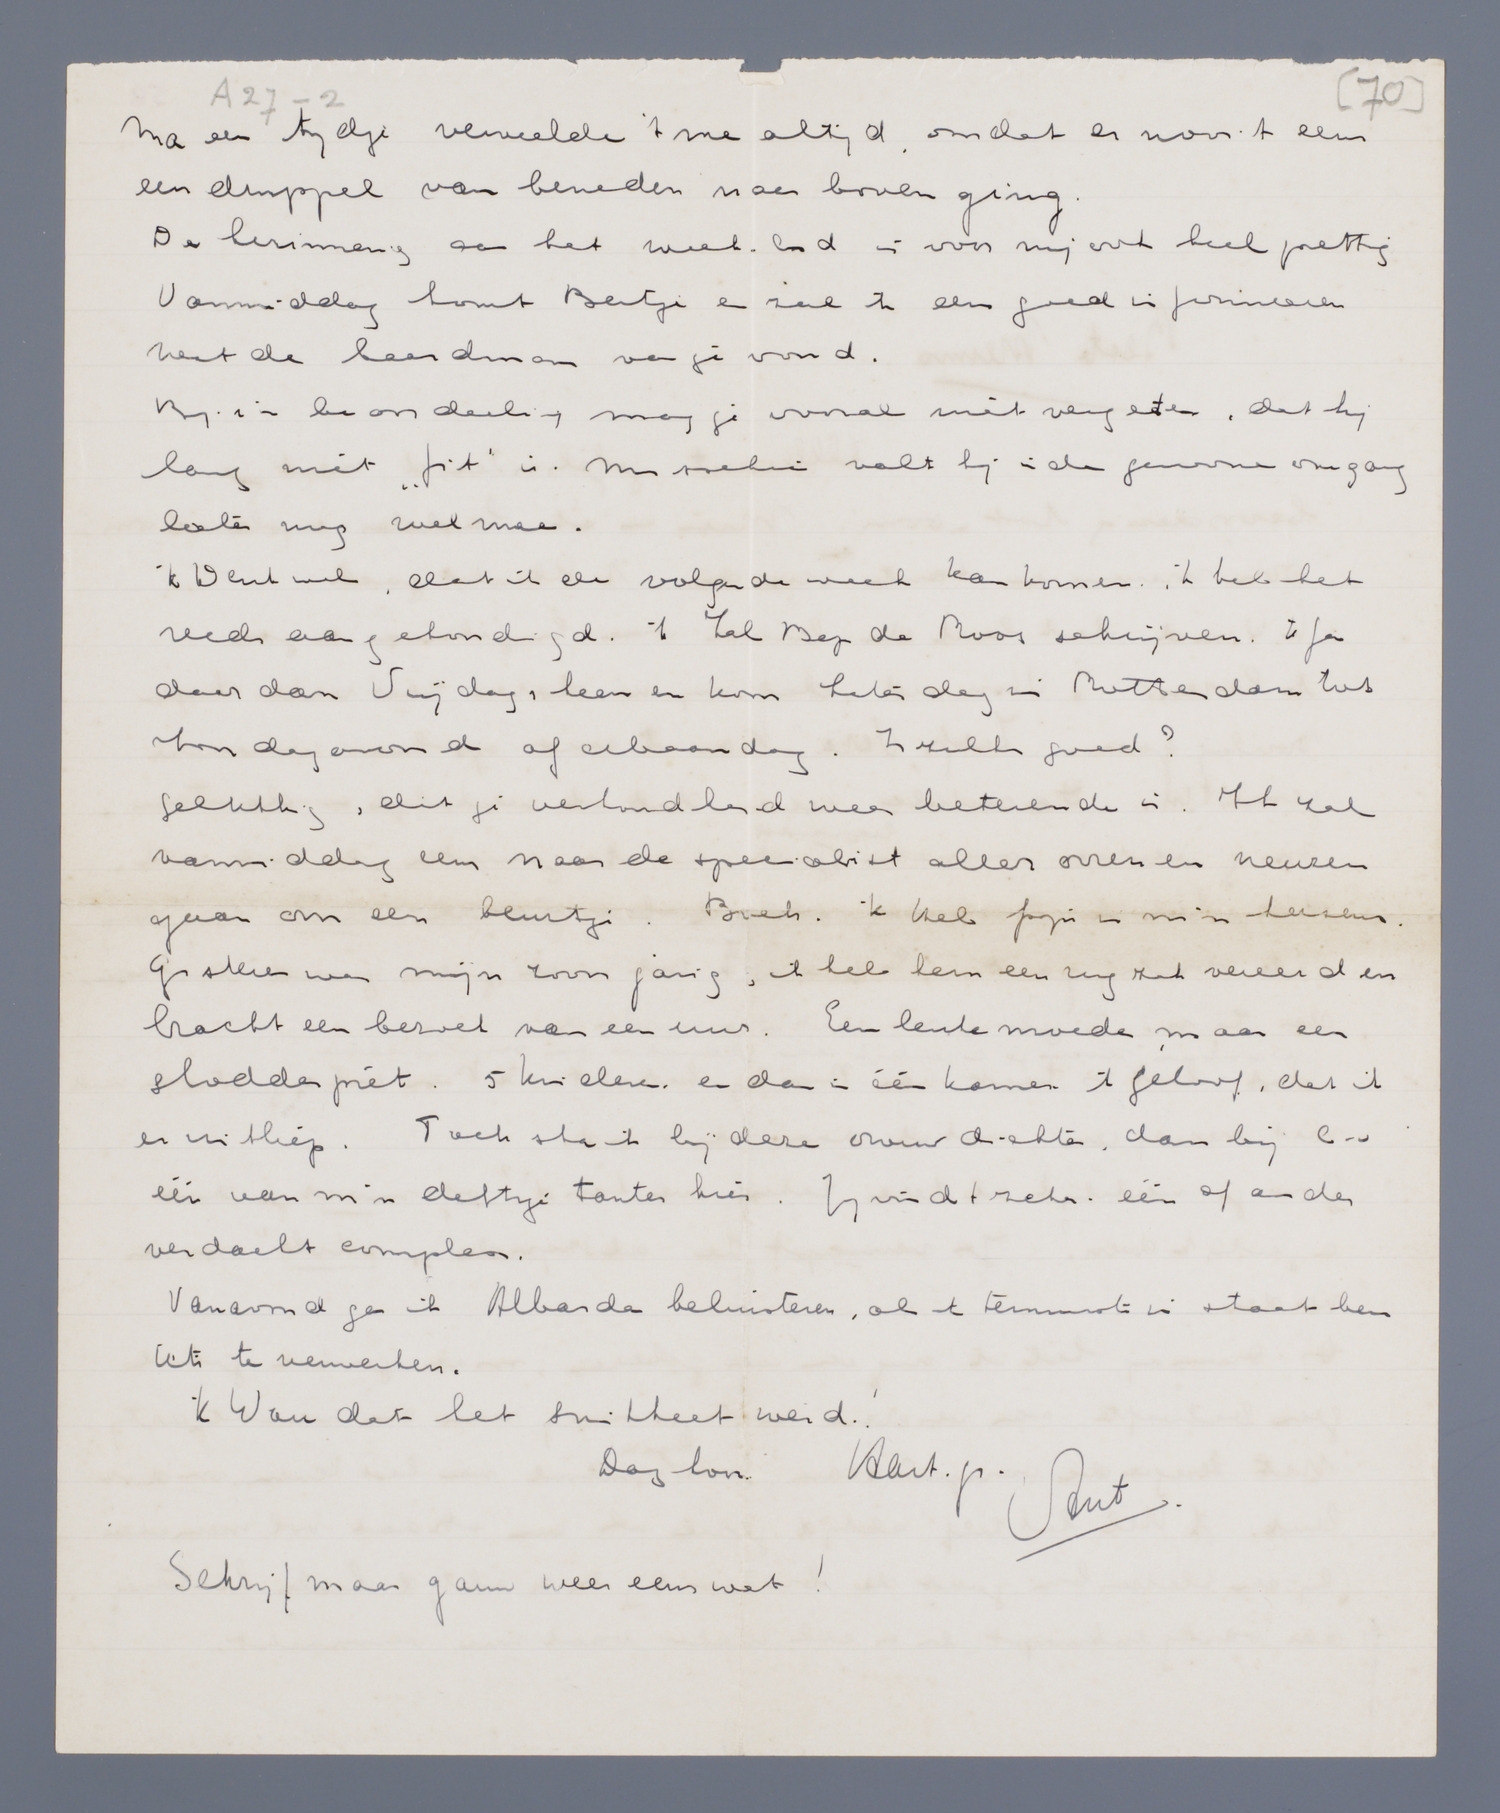 A27-2 [70]
Na een tydje verveelde 't me altijd, omdat er nooit eens
een druppel van beneden naar boven ging.
De herinnering aan het week-end is voor mij ook heel prettig
Vanmiddag komt Bertje en zal ik een goed informeeren
wat de van je vond.
Bij je beoordeeling mag je vooral niet vergeten, dat hij
lang niet „fit" is. Misschien valt hij in de gewone omgang
later nog wel mee.
'k Denk wel, dat ik de volgende week kan komen. ik heb het
reeds aangekondigd. 'k Zal Bep de Roos schrijven. 'k ga
daar dan Vrijdags heen en kom Zaterdag in Rotterdam tot
Zondagavond of Maandag. Is zulks goed?
Gelukkig, dat je verkoudheid weer beterende is. Ik zal
vanmiddag eens naar de specialist aller ooren en neuzen
gaan om een beurtje. Bweh. ik heb pijn in m'n hersens.
Gisteren was mijn zoon jarig, ik heb hem een rugzak vereerd en
bracht een bezoek van een uur. Een leuke moeder, maar een
slodderpiet. 5 kinderen en dan in één kamer. ik geloof, dat ik
er uitliep. Toch sta ik bij deze vrouw dichter, dan bij
één van m'n deftige tantes hier. Jij vindt zeker één of ander
verdacht complex.
Vanavond ga ik Albarda beluisteren, als ik tenminste in staat ben
iets te verwerken.
'k Wou dat het snikheet werd!
Dag hoor. Hart. gr.
Schrijf maar gauw weer eens wat!